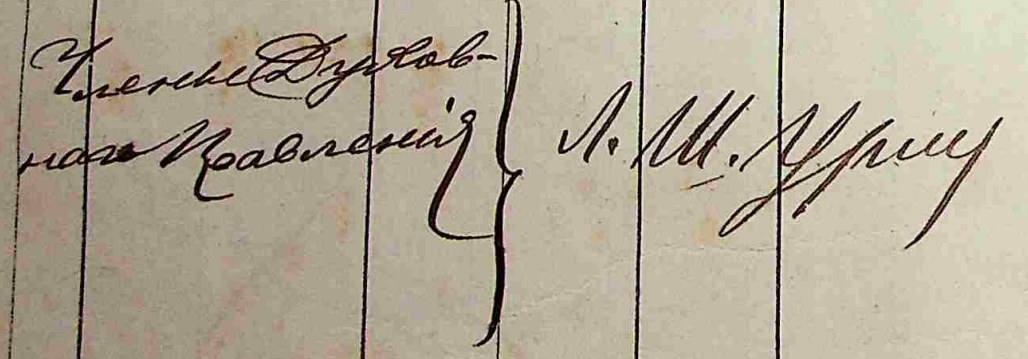 Члены Духов-
наго Правленія
Л. Ш. Урич